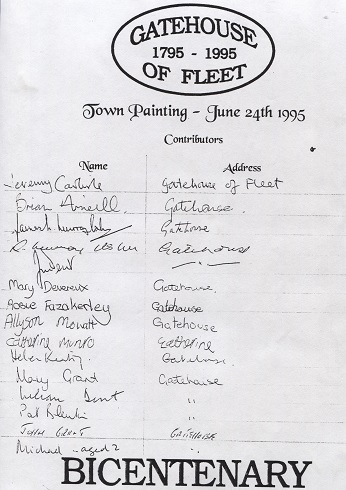 GATEHOUSE
1795 - 1995
OF FLEET
Town Painting - June 24th 1995
Contributors
Name Address
Jeremy Carlisle Gatehouse of Fleet
Brian Gatehouse.
Gatehouse
Gatehouse
Mary Devereux Gatehouse
Rosie Fazakerley Gatehouse
Allyson Mowatt Gatehouse
Catherine Munro Catherine
Helen Gatehouse
Mary Grant Gatehouse
William Dent "
Pat "
John Grant GATEHOUSE
Michael - aged 2 "
BICENTENARY